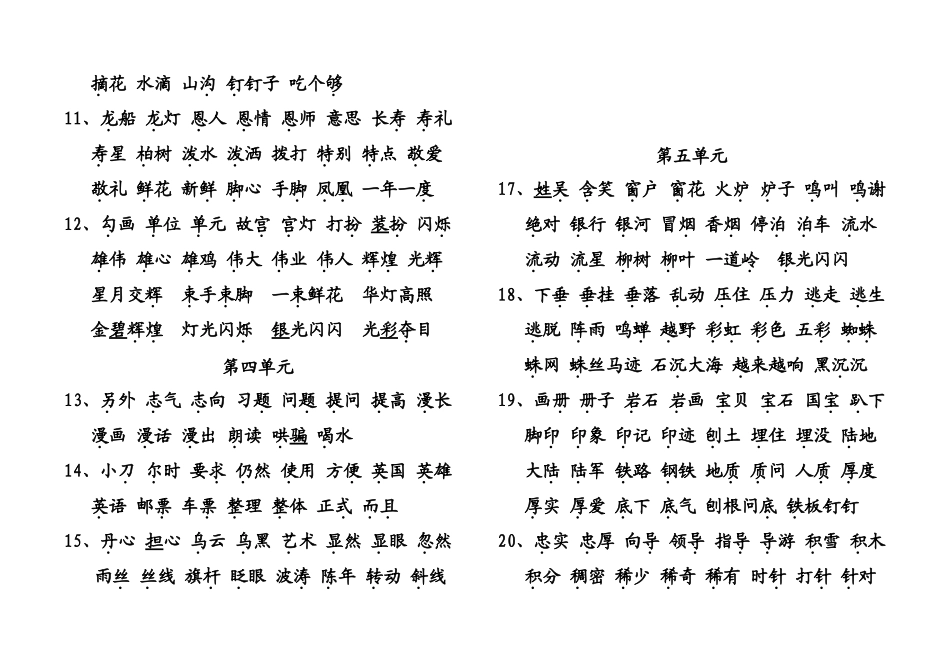 摘花 水滴 山沟 钉钉子 吃个够
11、龙船 龙灯 恩人 恩情 恩师 意思 长寿 寿礼
寿星 柏树 泼水 泼洒 拨打 特别 特点 敬爱
敬礼 鲜花 新鲜 脚心 手脚 凤凰 一年一度
12、勾画 单位 单元 故宫 宫灯 打扮 装扮 闪烁
雄伟 雄心 雄鸡 伟大 伟业 伟人 辉煌 光辉
星月交辉 束手束脚 一束鲜花 华灯高照
金碧辉煌 灯光闪烁 银光闪闪 光彩夺目
第四单元
13、另外 志气 志向 习题 问题 提问 提高 漫长
漫画 漫话 漫出 朗读 哄骗 喝水
14、小刀 尔时 要求 仍然 使用 方便 英国 英雄
英语 邮票 车票 整理 整体 正式 而且
15、丹心 担心 乌云 乌黑 艺术 显然 显眼 忽然
雨丝 丝线 旗杆 眨眼 波涛 陈年 转动 斜线
第五单元
17、姓吴 含笑 窗户 窗花 火炉 炉子 鸣叫 鸣谢
绝对 银行 银河 冒烟 香烟 停泊 泊车 流水
流动 流星 柳树 柳叶 一道岭 银光闪闪
18、下垂 垂挂 垂落 乱动 压住 压力 逃走 逃生
逃脱 阵雨 鸣蝉 越野 彩虹 彩色 五彩 蜘蛛
蛛网 蛛丝马迹 石沉大海 越来越响 黑沉沉
19、画册 册子 岩石 岩画 宝贝 宝石 国宝 趴下
脚印 印象 印记 印迹 刨土 埋住 埋没 陆地
大陆 陆军 铁路 钢铁 地质 质问 人质 厚度
厚实 厚爱 底下 底气 刨根问底 铁板钉钉
20、忠实 忠厚 向导 领导 指导 导游 积雪 积木
积分 稠密 稀少 稀奇 稀有 时针 打针 针对